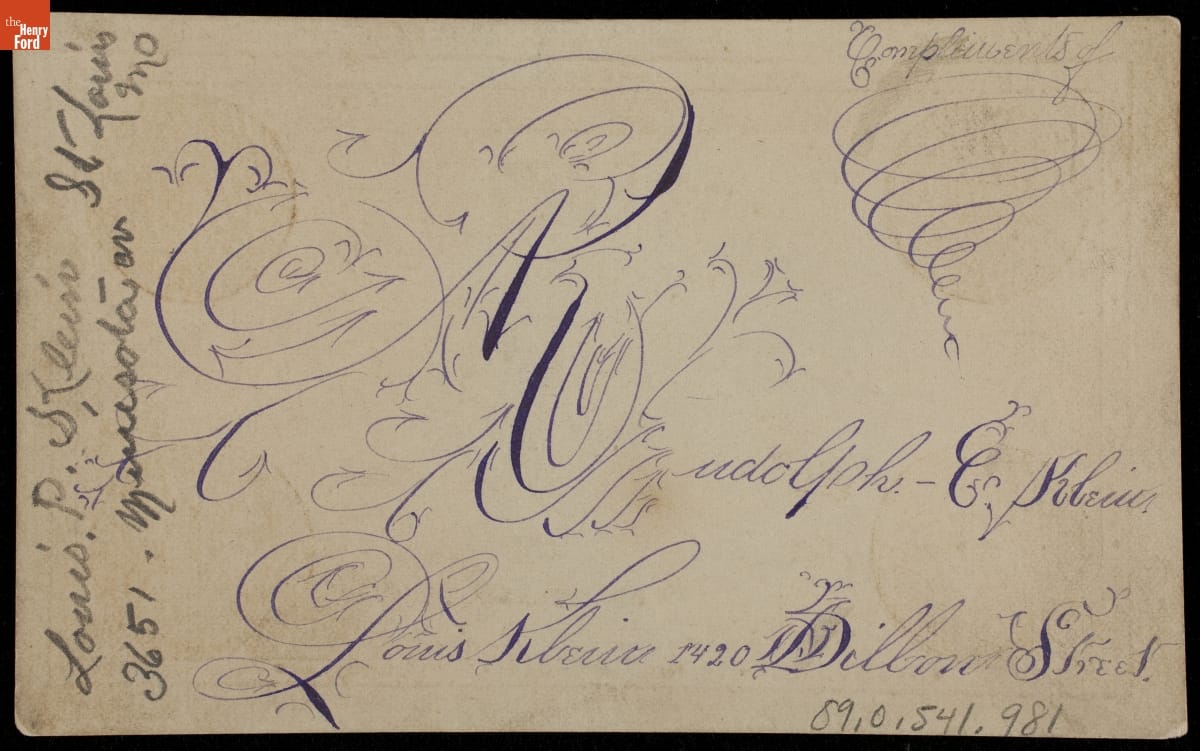 the
Henry
Ford
Complements of
Rudolph. - E. Klein.
Louis Klein 1420 Dillon Street.
Louis. P. Klein
3651. Minnesota av St Louis
Mo
89.0.541.981